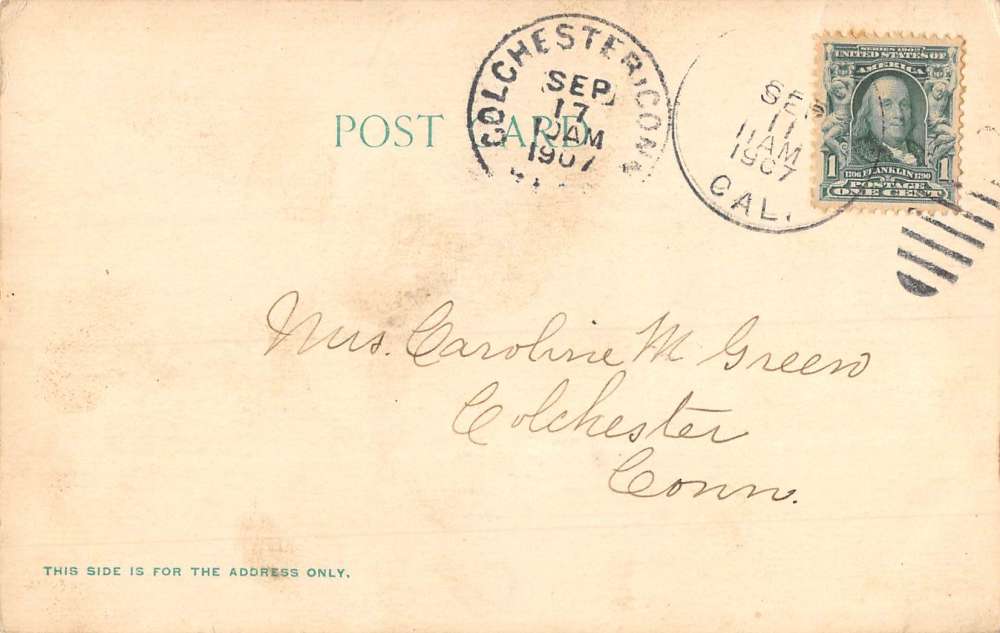 COLCHESTER, CONN
SEP
17
10AM
1907
SEP
11
11AM
1907
CAL.
SERIES 1902
UNITED STATES OF
AMERICA
1 1
1706 FRANKLIN 1790
POSTAGE
ONE CENT
POST CARD
Mrs. Caroline M Green
Colchester
Conn.
THIS SIDE IS FOR THE ADDRESS ONLY.